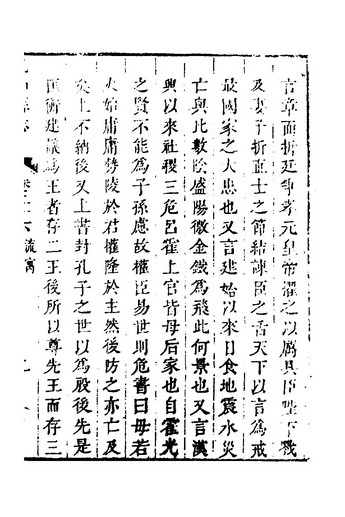 言章面折廷爭孝元皇帝擢之以厲具臣陛下戮
及妻子折直士之節結諫臣之舌天下以言為戒
最國家之大患也又言建始以來日食地震水災
亡與比數陰盛陽微金鐵為飛此何景也又言漢
興以來社稷三危呂霍上官皆母后家也自霍光
之賢不能為子孫慮故權臣易世則危書曰毋若
火始庸庸勢陵於君權隆於主然後防之亦亡及
矣上不納後又上書封孔子之世以為殷後先是
匡衡建議為王者存二王後所以尊先王而存三
流寓